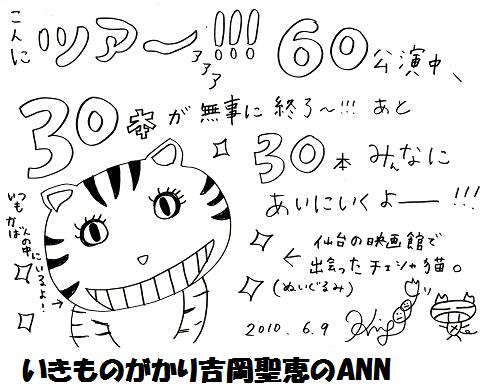 こんにツアー!!!
アアア
60公演中、
30本が無事に終了〜!!! あと
30本みんなに
あいにいくよー!!!
いつもかばんの中にいるよ!→
← 仙台の映画館で
出会ったチェシャ猫。
(ぬいぐるみ)
2010.6.9
いきものがかり吉岡聖恵のANN